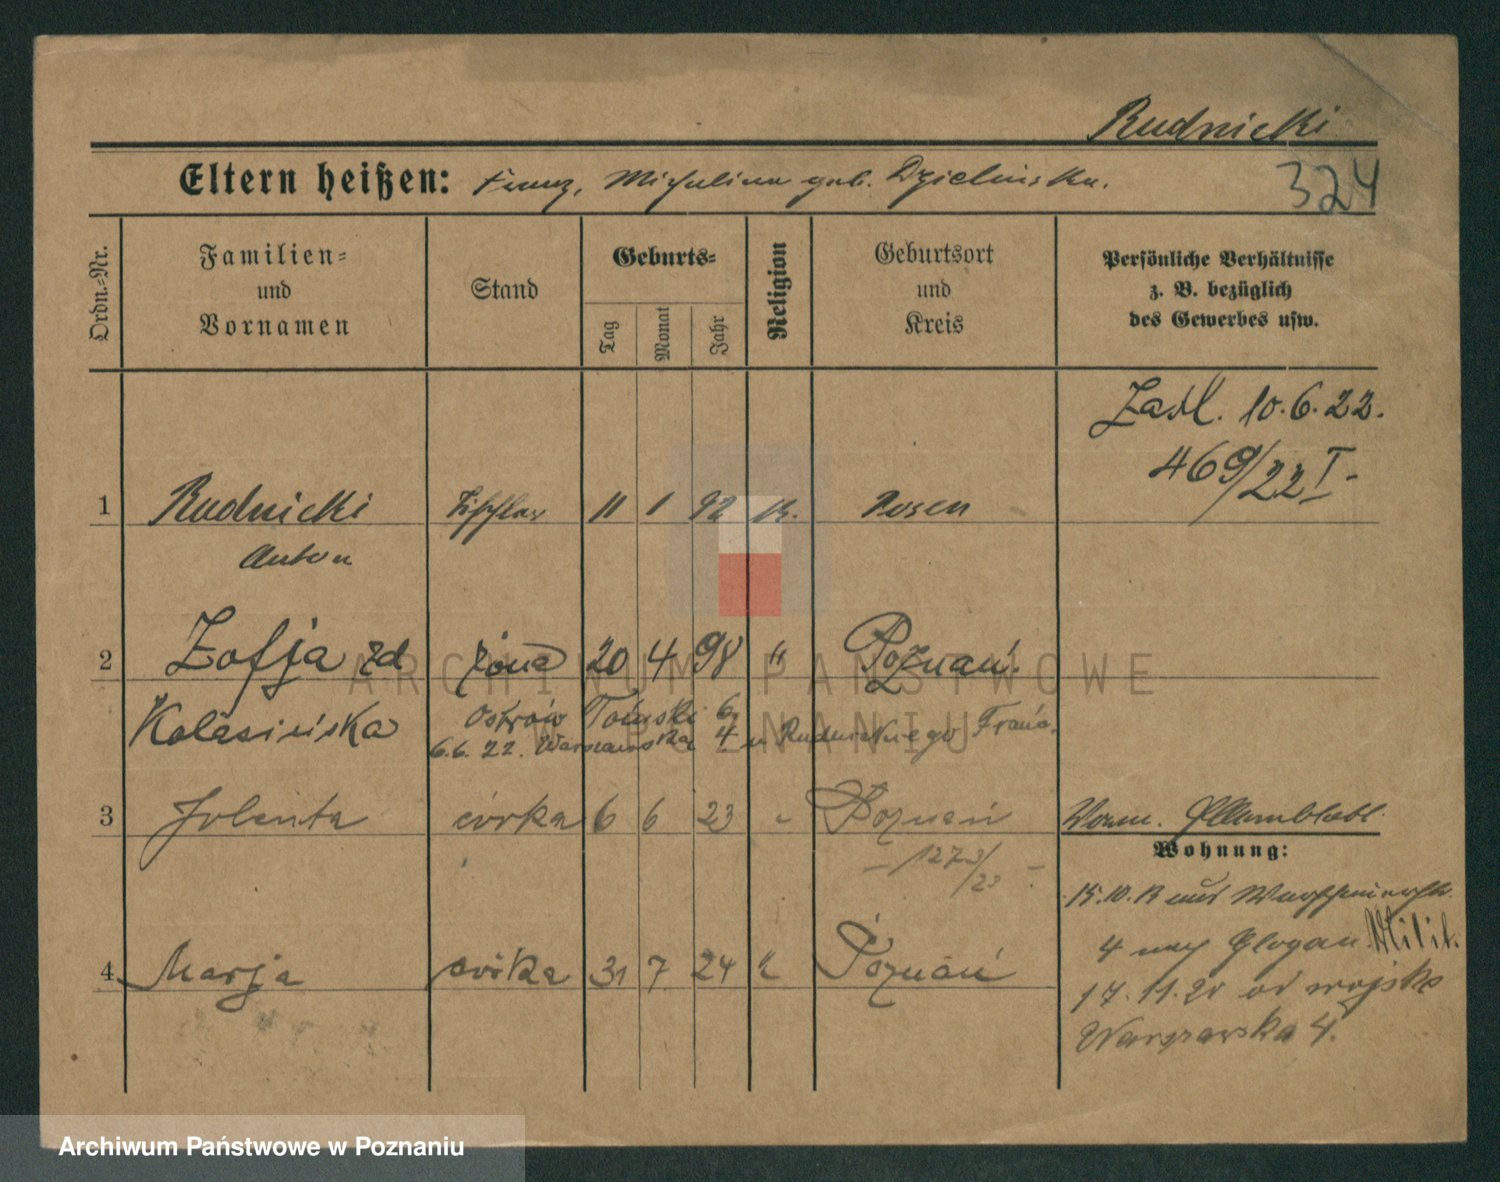 Rudnicki
Eltern heißen: Franz, Michalina geb. Dzielinska.
324
Ordn.-Nr.
Familien-
und
Vornamen
Stand
Geburts-
Tag
Monat
Jahr
Religion
Geburtsort
und
Kreis
Persönliche Verhältnisse
z. B. bezüglich
des Gewerbes usw.
10.6.22.
469/22 I-
1 Rudnicki Tischler 11 1 92 k. Posen
Anton
2 Zofja zd żona 20 4 98 " Poznań.
Kolasińska
Ostrów Tumski 6.
6.6.22. Warszawska 4 u Rudnickiego Franc.
3 Jolenta córka 6 6 23 " Poznań
- 1273/23 -
Worm.
Wohnung:
15.10.13 aus
4 nach Glogau Milit.
17.11.20 od wojska
Warszawska 4.
4 Marja córka 31 7 24 " Poznań
ARCHIWUM PAŃSTWOWE
W POZNANIU
Archiwum Państwowe w Poznaniu